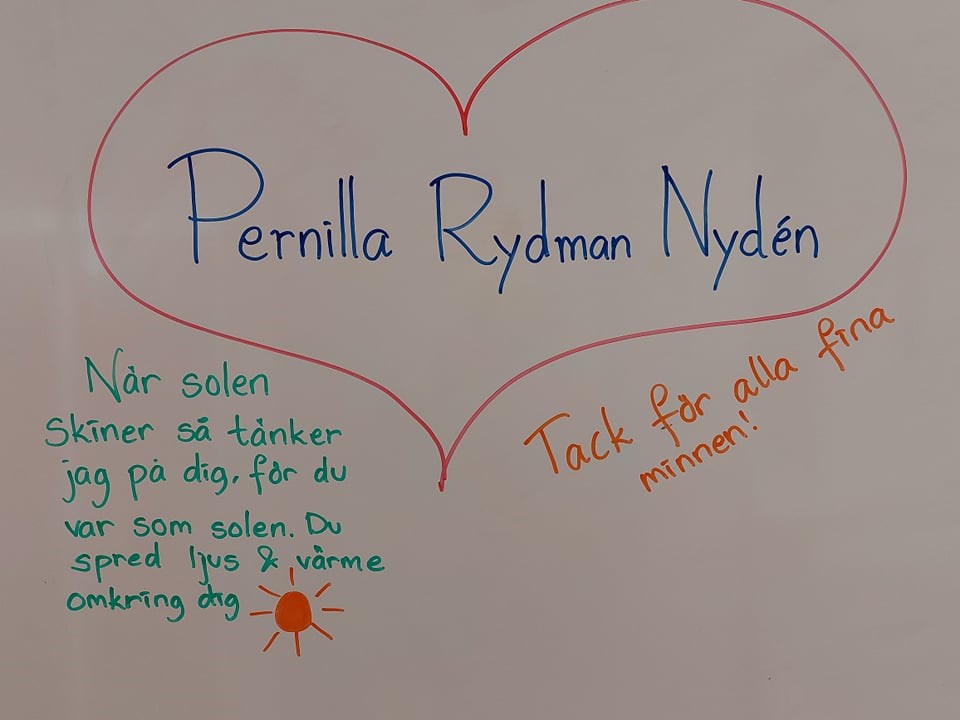 Pernilla Rydman Nydén
När solen
skiner så tänker
jag på dig, för du
var som solen. Du
spred ljus & värme
omkring dig
Tack för alla fina
minnen!